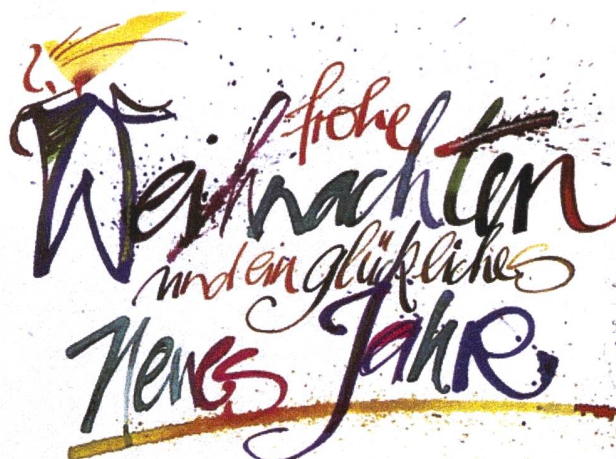 frohe
Weihnachten
und ein glückliches
Neues Jahr